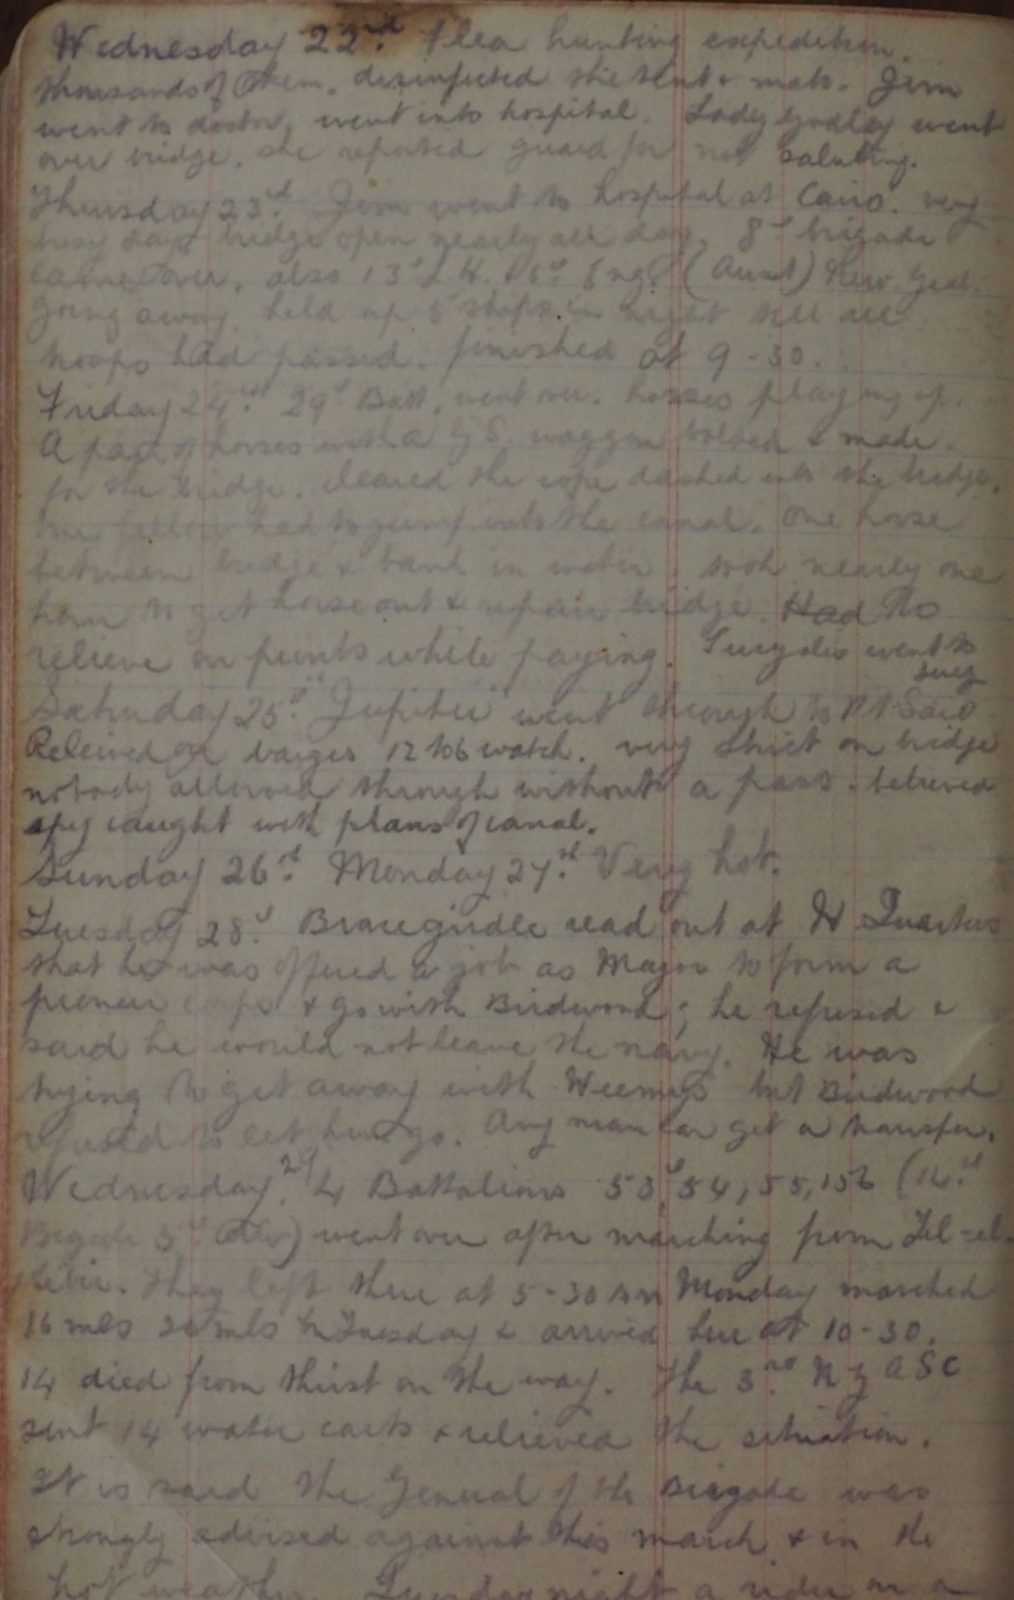 Wednesday 22nd. flea hunting expedition.
thousands of them. disinfected the tent & mats. Jim
went to doctor, went into hospital. Lady Godley went
over bridge. she reported guard for not saluting.
Thursday 23rd. Jim went to hospital at Cairo. very
busy day bridge open nearly all day. 8th brigade
came over, also 13th L.H. Eng. (Aust)
going away. held up 5 ships in night till all
troops had passed. finished at 9-30.
Friday 24th. 29th Batt. went over. horses playing up.
A pair of horses with a G S. waggon bolted & made
for the bridge. cleared the rope dashed into the bridge.
one fellow had to jump into the canal. One horse
between bridge & bank in water. took nearly one
hour to get horse out & repair bridge. Had to
relieve on punts while paying. went to
Suez
Saturday 25th. Jupiter went through to Pt Said
Relieved on barges 12 to 6 watch. very strict on bridge
nobody allowed through without a pass. believed
spy caught with plans of canal.
Sunday 26th. Monday 27th. Very hot.
Tuesday 28th. Bracegirdle read out at H Quarters
that he was offered a job as Major to form a
pioneer corps & go with Birdwood; he refused &
said he would not leave the navy. He was
trying to get away with Weemys but Birdwood
refused to let him go. Any man can get a transfer.
Wednesday 29. 4 Battalions 53, 54, 55, 156 (14th
Brigade 5th Div) went over after marching from Tel-el-
Kebir. They left there at 5-30 AM Monday marched
16 mls mls on Tuesday & arrived here at 10-30.
14 died from thirst on the way. The 3rd. N Z A S C
sent 14 water carts & relieved the situation.
It is said the General of the Brigade was
strongly advised against this march & in the
hot weather. Tuesday night a rider on a